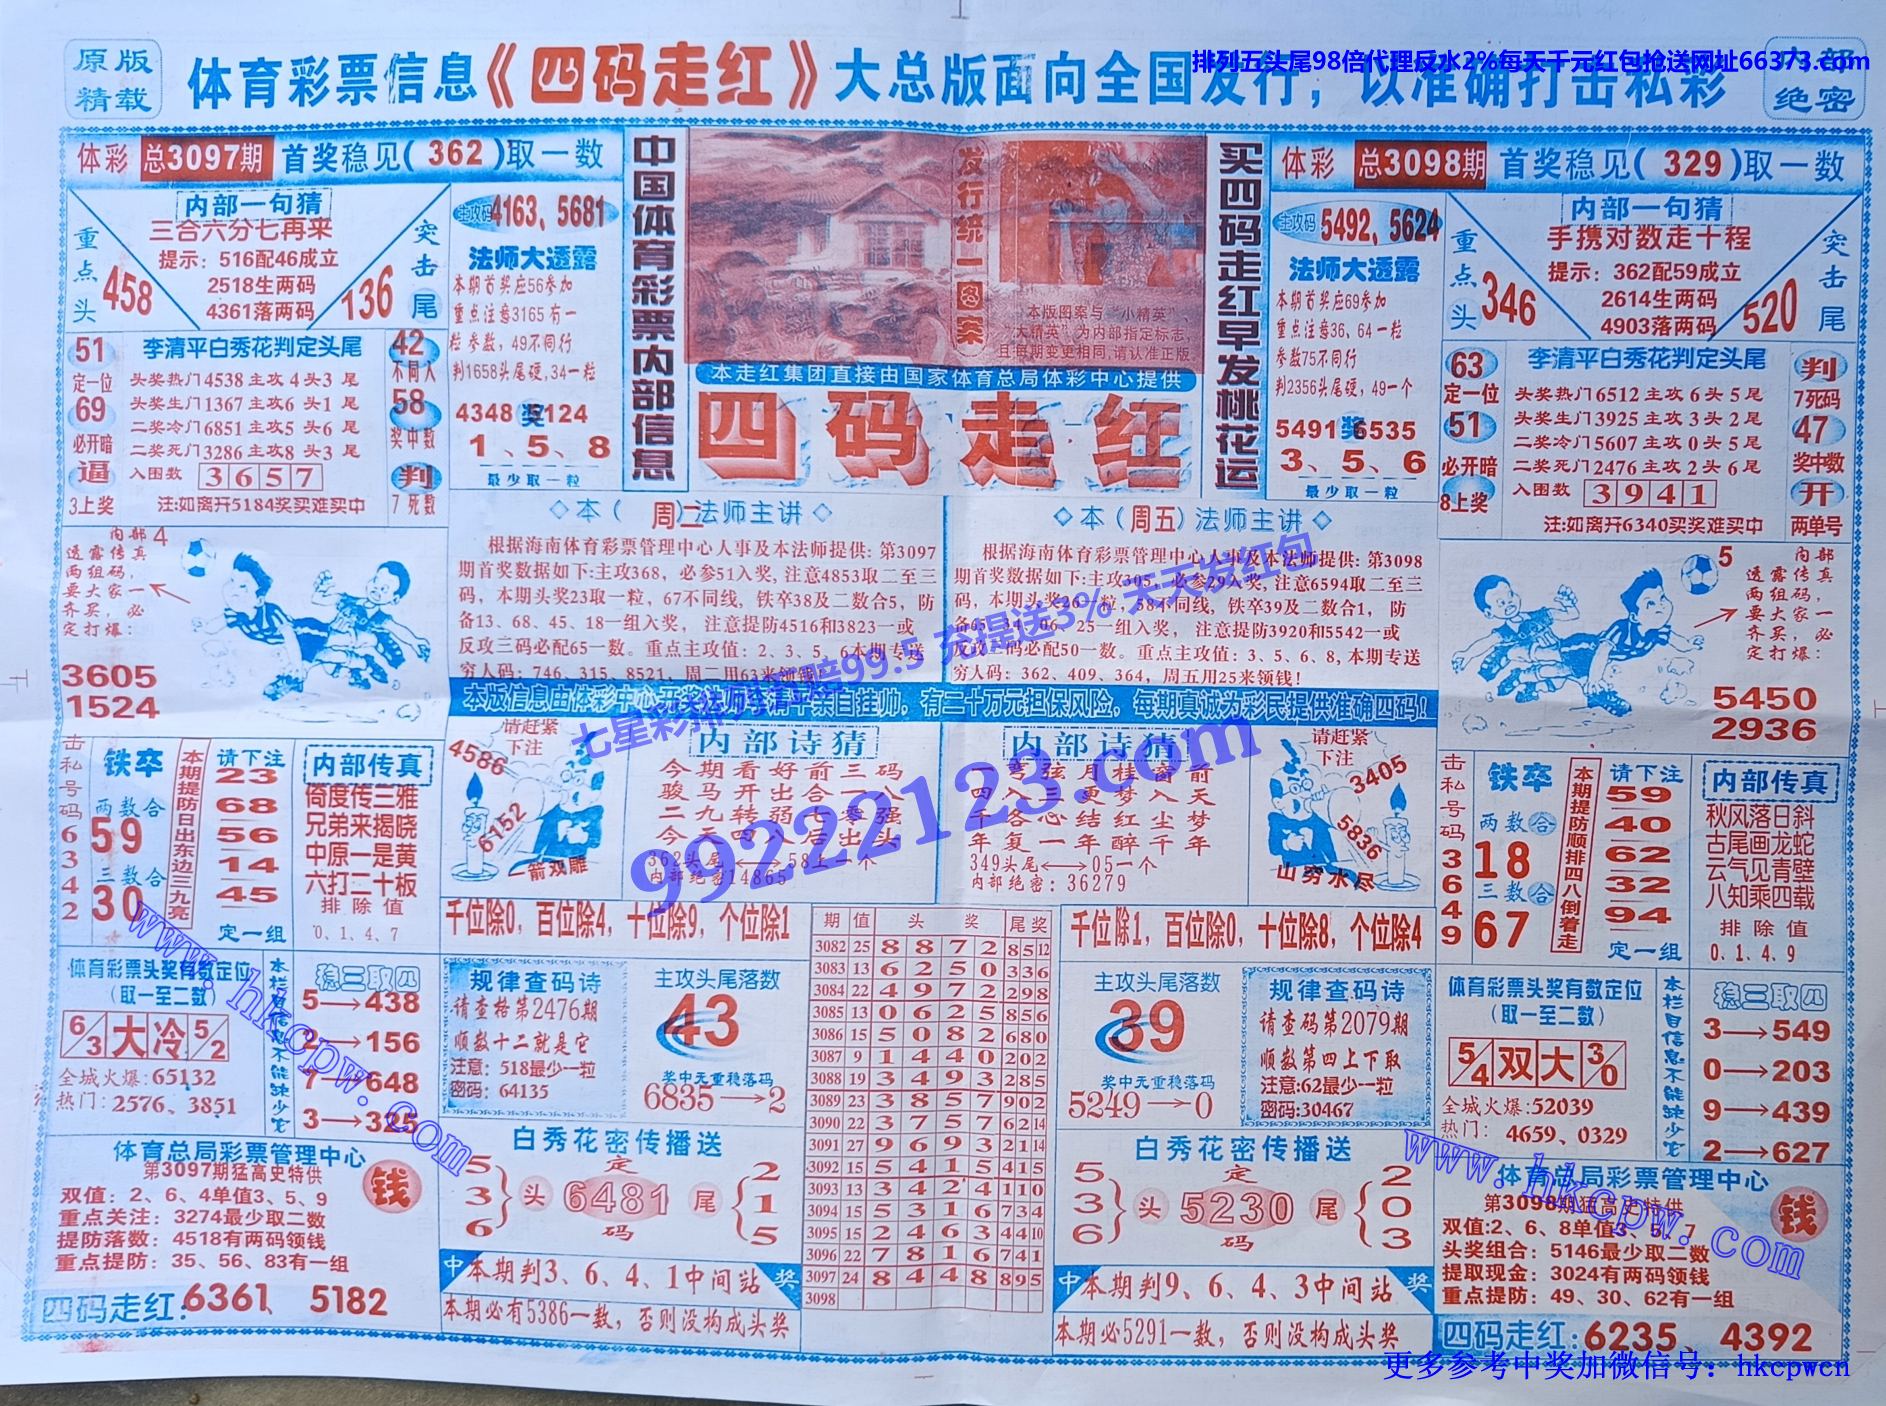 原版
精载
体育彩票信息《四码走红》大总版面向全国发行，以准确打击私彩
排列五头尾98倍代理反水2%每天千元红包抢送网址66373.com
内部
绝密
体彩 总3097期 首奖稳见(362)取一数
内部一句猜
三合六分七再来
提示: 516配46成立
2518生两码
4361落两码
重点头
458
突击尾
136
主攻码
4163、5681
法师大透露
本期首奖应56参加
重点注意3165有一
粒参数, 49不同行
判1658头尾硬,34一粒
4348 奖 5124
1、5、8
最少取一粒
51
定一位
69
必开暗
逼
3上奖
李清平白秀花判定头尾
头奖热门4538主攻4头3尾
头奖生门1367主攻6头1尾
二奖冷门6851主攻5头6尾
二奖死门3286主攻8头3尾
入围数 3 6 5 7
注:如离开5184奖买难买中
42
不同人
58
奖中数
判
7死数
中国体育彩票内部信息
发行统一图案
本版图案与“小精英”、
“大精英”为内部指定标志,
且每期变更相同,请认准正版
本走红集团直接由国家体育总局体彩中心提供
四码走红
买四码走红早发桃花运
体彩 总3098期 首奖稳见(329)取一数
主攻码
5492、5624
法师大透露
本期首奖应69参加
重点注意36、64一粒
参数75不同行
判2356头尾硬, 49一个
5491 奖 6535
3、5、6
最少取一粒
内部一句猜
手携对数走十程
提示: 362配59成立
2614生两码
4903落两码
重点头
346
突击尾
520
63
定一位
51
必开暗
8上奖
李清平白秀花判定头尾
头奖热门6512主攻6头5尾
头奖生门3925主攻3头2尾
二奖冷门5607主攻0头5尾
二奖死门2476主攻2头6尾
入围数 3 9 4 1
注:如离开6340买奖难买中
判
7死码
47
奖中数
开
两单号
内部 4
透露传真
两组码,
要大家一
齐买, 必
定打爆:
3605
1524
◇本( 周二)法师主讲◇
根据海南体育彩票管理中心人事及本法师提供: 第3097
期首奖数据如下:主攻368, 必参51入奖, 注意4853取二至三
码, 本期头奖23取一粒, 67不同线, 铁卒38及二数合5, 防
备13、68、45、18一组入奖, 注意提防4516和3823一或
反攻三码必配65一数。重点主攻值: 2、3、5、6本期专送
穷人码: 746、315、8521, 周二用63来领钱!
◇本(周五)法师主讲◇
根据海南体育彩票管理中心人事及本法师提供: 第3098
期首奖数据如下:主攻305, 必参29入奖, 注意6594取二至三
码, 本期头奖26一粒, 58不同线, 铁卒39及二数合1, 防
备65、34、06、25一组入奖, 注意提防3920和5542一或
反攻三码必配50一数。重点主攻值: 3、5、6、8, 本期专送
穷人码: 362、409、364, 周五用25来领钱!
5 内部
透露传真
两组码,
要大家一
齐买, 必
定打爆:
5450
2936
七星彩排列 赔99.5 充提送3% 天天发红包
99222123.com
击私号码6342
铁卒
两数合
59
三数合
30
本期提防日出东边三九亮
请下注
23
68
56
14
45
定一组
内部传真
倚度传三雅
兄弟来揭晓
中原一是黄
六打二十板
排除值
0、1、4、7
请赶紧
下注
4586
6152
一箭双雕
内部诗猜
今期看好前三码
骏马开出合一八
二九转弱七零强
今天四八后出头
362头尾⟷58上一个
内部绝密14865
内部诗猜
弯弦月桂窗前
四入三更梦入天
年冬心结红尘梦
年复一年醉千年
349头尾⟷05一个
内部绝密: 36279
请赶紧
下注
3405
5836
山穷水尽
击私号码3649
铁卒
两数合
18
三数合
67
本期提防顺排四八倒着走
请下注
59
40
62
32
94
定一组
内部传真
秋风落日斜
古尾画龙蛇
云气见青壁
八知乘四载
排除值
0、1、4、9
千位除0, 百位除4, 十位除9, 个位除1
千位除1, 百位除0, 十位除8, 个位除4
体育彩票头奖有数定位
(取一至二数)
6/3 大 冷 5/2
全城火爆:65132
热门: 2576、3851
本栏目信息不能缺少它
稳三取四
5→438
2→156
7→648
3→325
规律查码诗
请查格第2476期
顺数十二就是它
注意: 518最少一粒
密码: 64135
主攻头尾落数
43
奖中元重稳落码
6835→2
期 值 头 奖 尾奖
3082 25 8 8 7 2 85 12
3083 13 6 2 5 0 336
3084 22 4 9 7 2 298
3085 13 0 6 2 5 856
3086 15 5 0 8 2 680
3087 9 1 4 4 0 202
3088 19 3 4 9 3 285
3089 23 3 8 5 7 902
3090 22 3 7 5 7 62 14
3091 27 9 6 9 3 21 14
3092 15 5 4 1 5 415
3093 13 3 4 2 4 110
3094 15 5 3 1 6 734
3095 15 2 4 6 3 44 10
3096 22 7 8 1 6 741
3097 24 8 4 4 8 895
3098
主攻头尾落数
39
奖中无重稳落码
5249→0
规律查码诗
请查码第2079期
顺数第四上下取
注意:62最少一粒
密码:30467
体育彩票头奖有数定位
(取一至二数)
5/4 双 大 3/0
全城火爆:52039
热门: 4659、0329
本栏目信息不能缺少它
稳三取四
3→549
0→203
9→439
2→627
体育总局彩票管理中心
第3097期猛高史特供
双值: 2、6、4单值3、5、9
重点关注: 3274最少取二数
提防落数: 4518有两码领钱
重点提防: 35、56、83有一组
钱
四码走红: 6361、5182
白秀花密传播送
5
3
6
头
定
6481
码
尾
2
1
5
中 本期判3、6、4、1中间站 奖
本期必有5386一数, 否则没构成头奖
白秀花密传播送
5
3
6
头
定
5230
码
尾
2
0
3
中 本期判9、6、4、3中间站 奖
本期必5291一数, 否则没构成头奖
体育总局彩票管理中心
第3098期猛高史特供
双值:2、6、8单值3、5、7
头奖组合: 5146最少取二数
提取现金: 3024有两码领钱
重点提防: 49、30、62有一组
钱
四码走红: 6235、4392
www.hkcpw.com
www.hkcpw.com
更多参考中奖加微信号: hkcpwcn